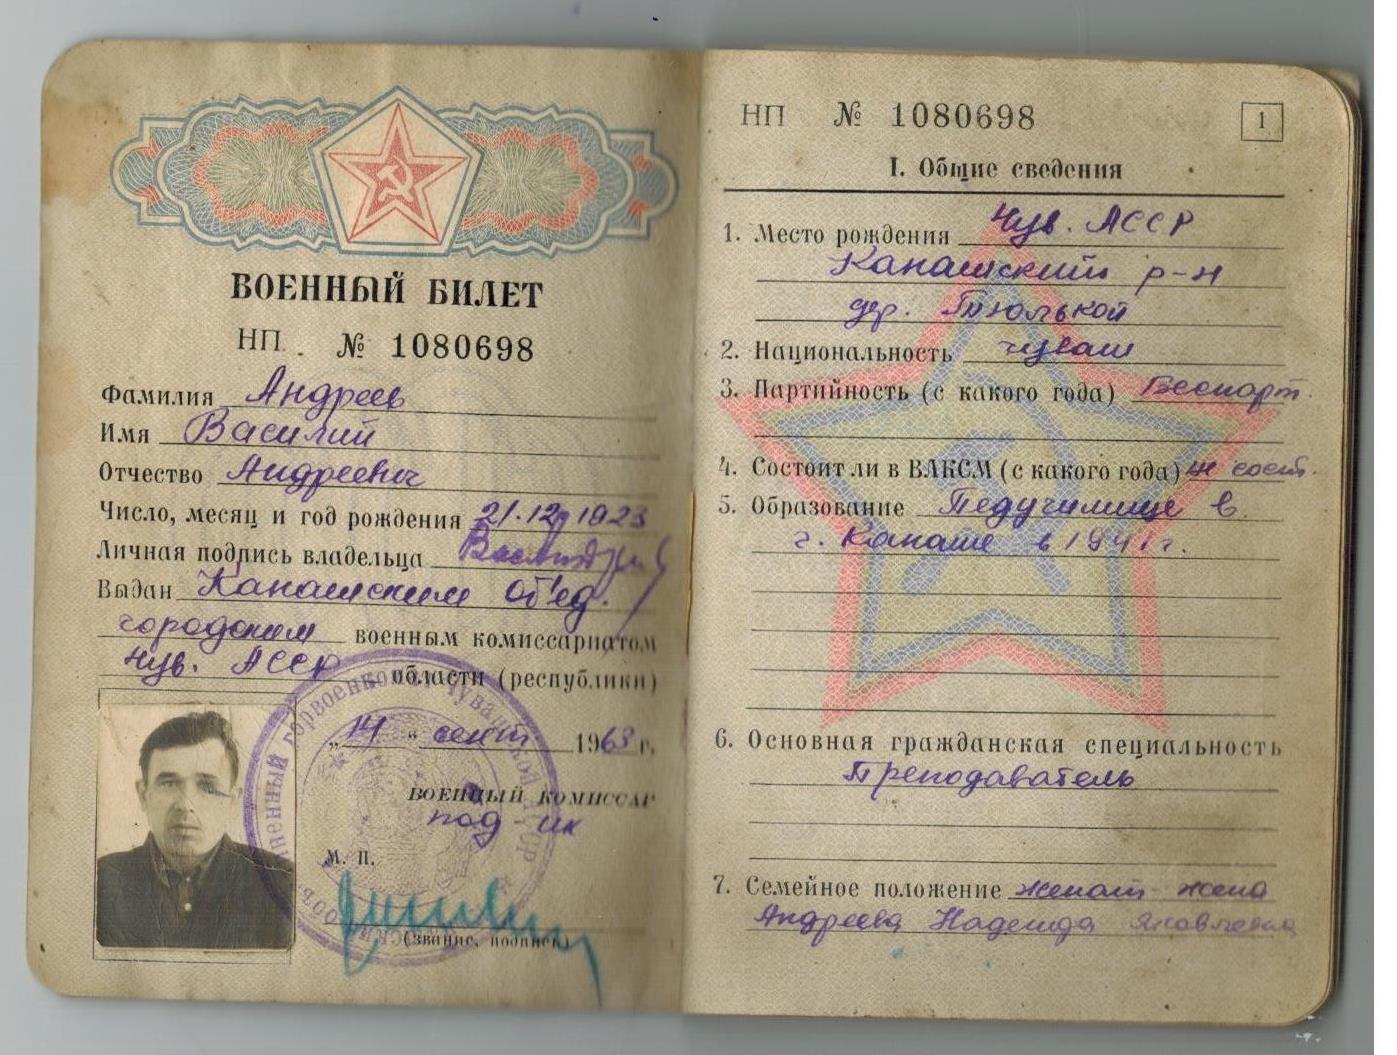 ВОЕННЫЙ БИЛЕТ
НП № 1080698
Фамилия Андреев
Имя Василий
Отчество Андреевич
Число, месяц и год рождения 21.12 1923
Личная подпись владельца
Выдан Канашским Об'ед.
городским военным комиссариатом
Чув. АССР области (республики)
„14“ сент 1963 г.
ВОЕННЫЙ КОМИССАР
под-ик
М. П.
(звание, подпись)
НП № 1080698
1
I. Общие сведения
1. Место рождения Чув. АССР
Канашский р-н
дер.
2. Национальность чуваш
3. Партийность (с какого года) Беспарт.
4. Состоит ли в ВЛКСМ (с какого года) не сост.
5. Образование Педучилище в
г. Канаше в 1941 г.
6. Основная гражданская специальность
Преподаватель
7. Семейное положение женат - жена
Андреева Надежда Яковлевна